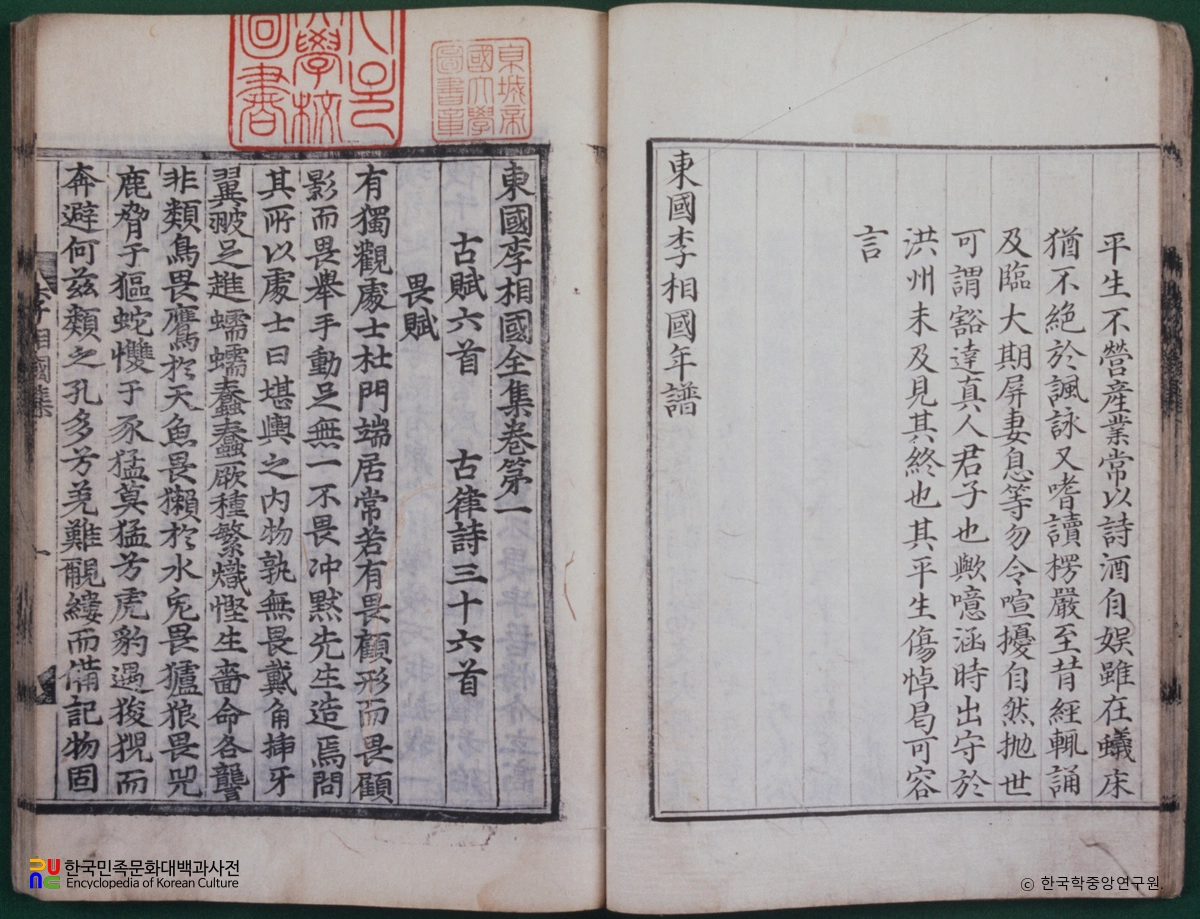 平生不營產業常以詩酒自娛雖在蟻床
猶不絶於諷詠又嗜讀楞嚴至昔經輒誦
及臨大期屏妻息等勿令喧擾自然抛世
可謂豁達真人君子也歟噫涵時出守於
洪州未及見其終也其平生傷悼曷可容
言
東國李相國年譜
東國李相國全集卷第一
古賦六首 古律詩三十六首
畏賦
有獨觀處士杜門端居常若有畏顧形而畏顧
影而畏舉手動足無一不畏冲默先生造焉問
其所以處士曰堪輿之內物孰無畏戴角揷牙
翼翍足趡蠕蠕蠢蠢厥種繁熾慳生嗇命各讋
非類鳥畏鷹於天魚畏獺於水兎畏獹狼畏兕
鹿脅于貙蛇㦬于豕猛莫猛芳虎豹遇狻猊而
奔避何玆類之孔多芳羌難覼縷而備記物固
李相國集
一
京城帝
國大學
圖書章
大學校
圖書
한국민족문화대백과사전
Encyclopedia of Korean Culture
© 한국학중앙연구원.